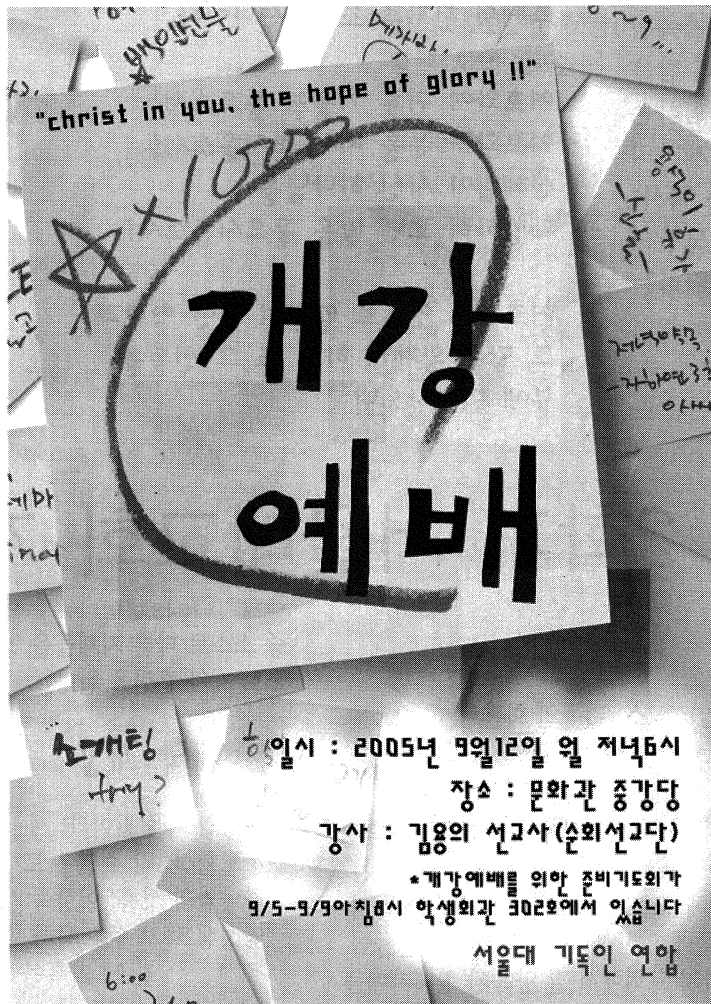 배인연부
"christ in you, the hope of glory !!"
☆ x 1000
개강
예배
저녁약속
소개팅
일시 : 2005년 9월12일 월 저녁6시
장소 : 문화관 중강당
강사 : 김용의 선교사(순회선교단)
*개강예배를 위한 준비기도회가
9/5-9/9아침8시 학생회관 302호에서 있습니다
6:00
서울대 기독인 연합